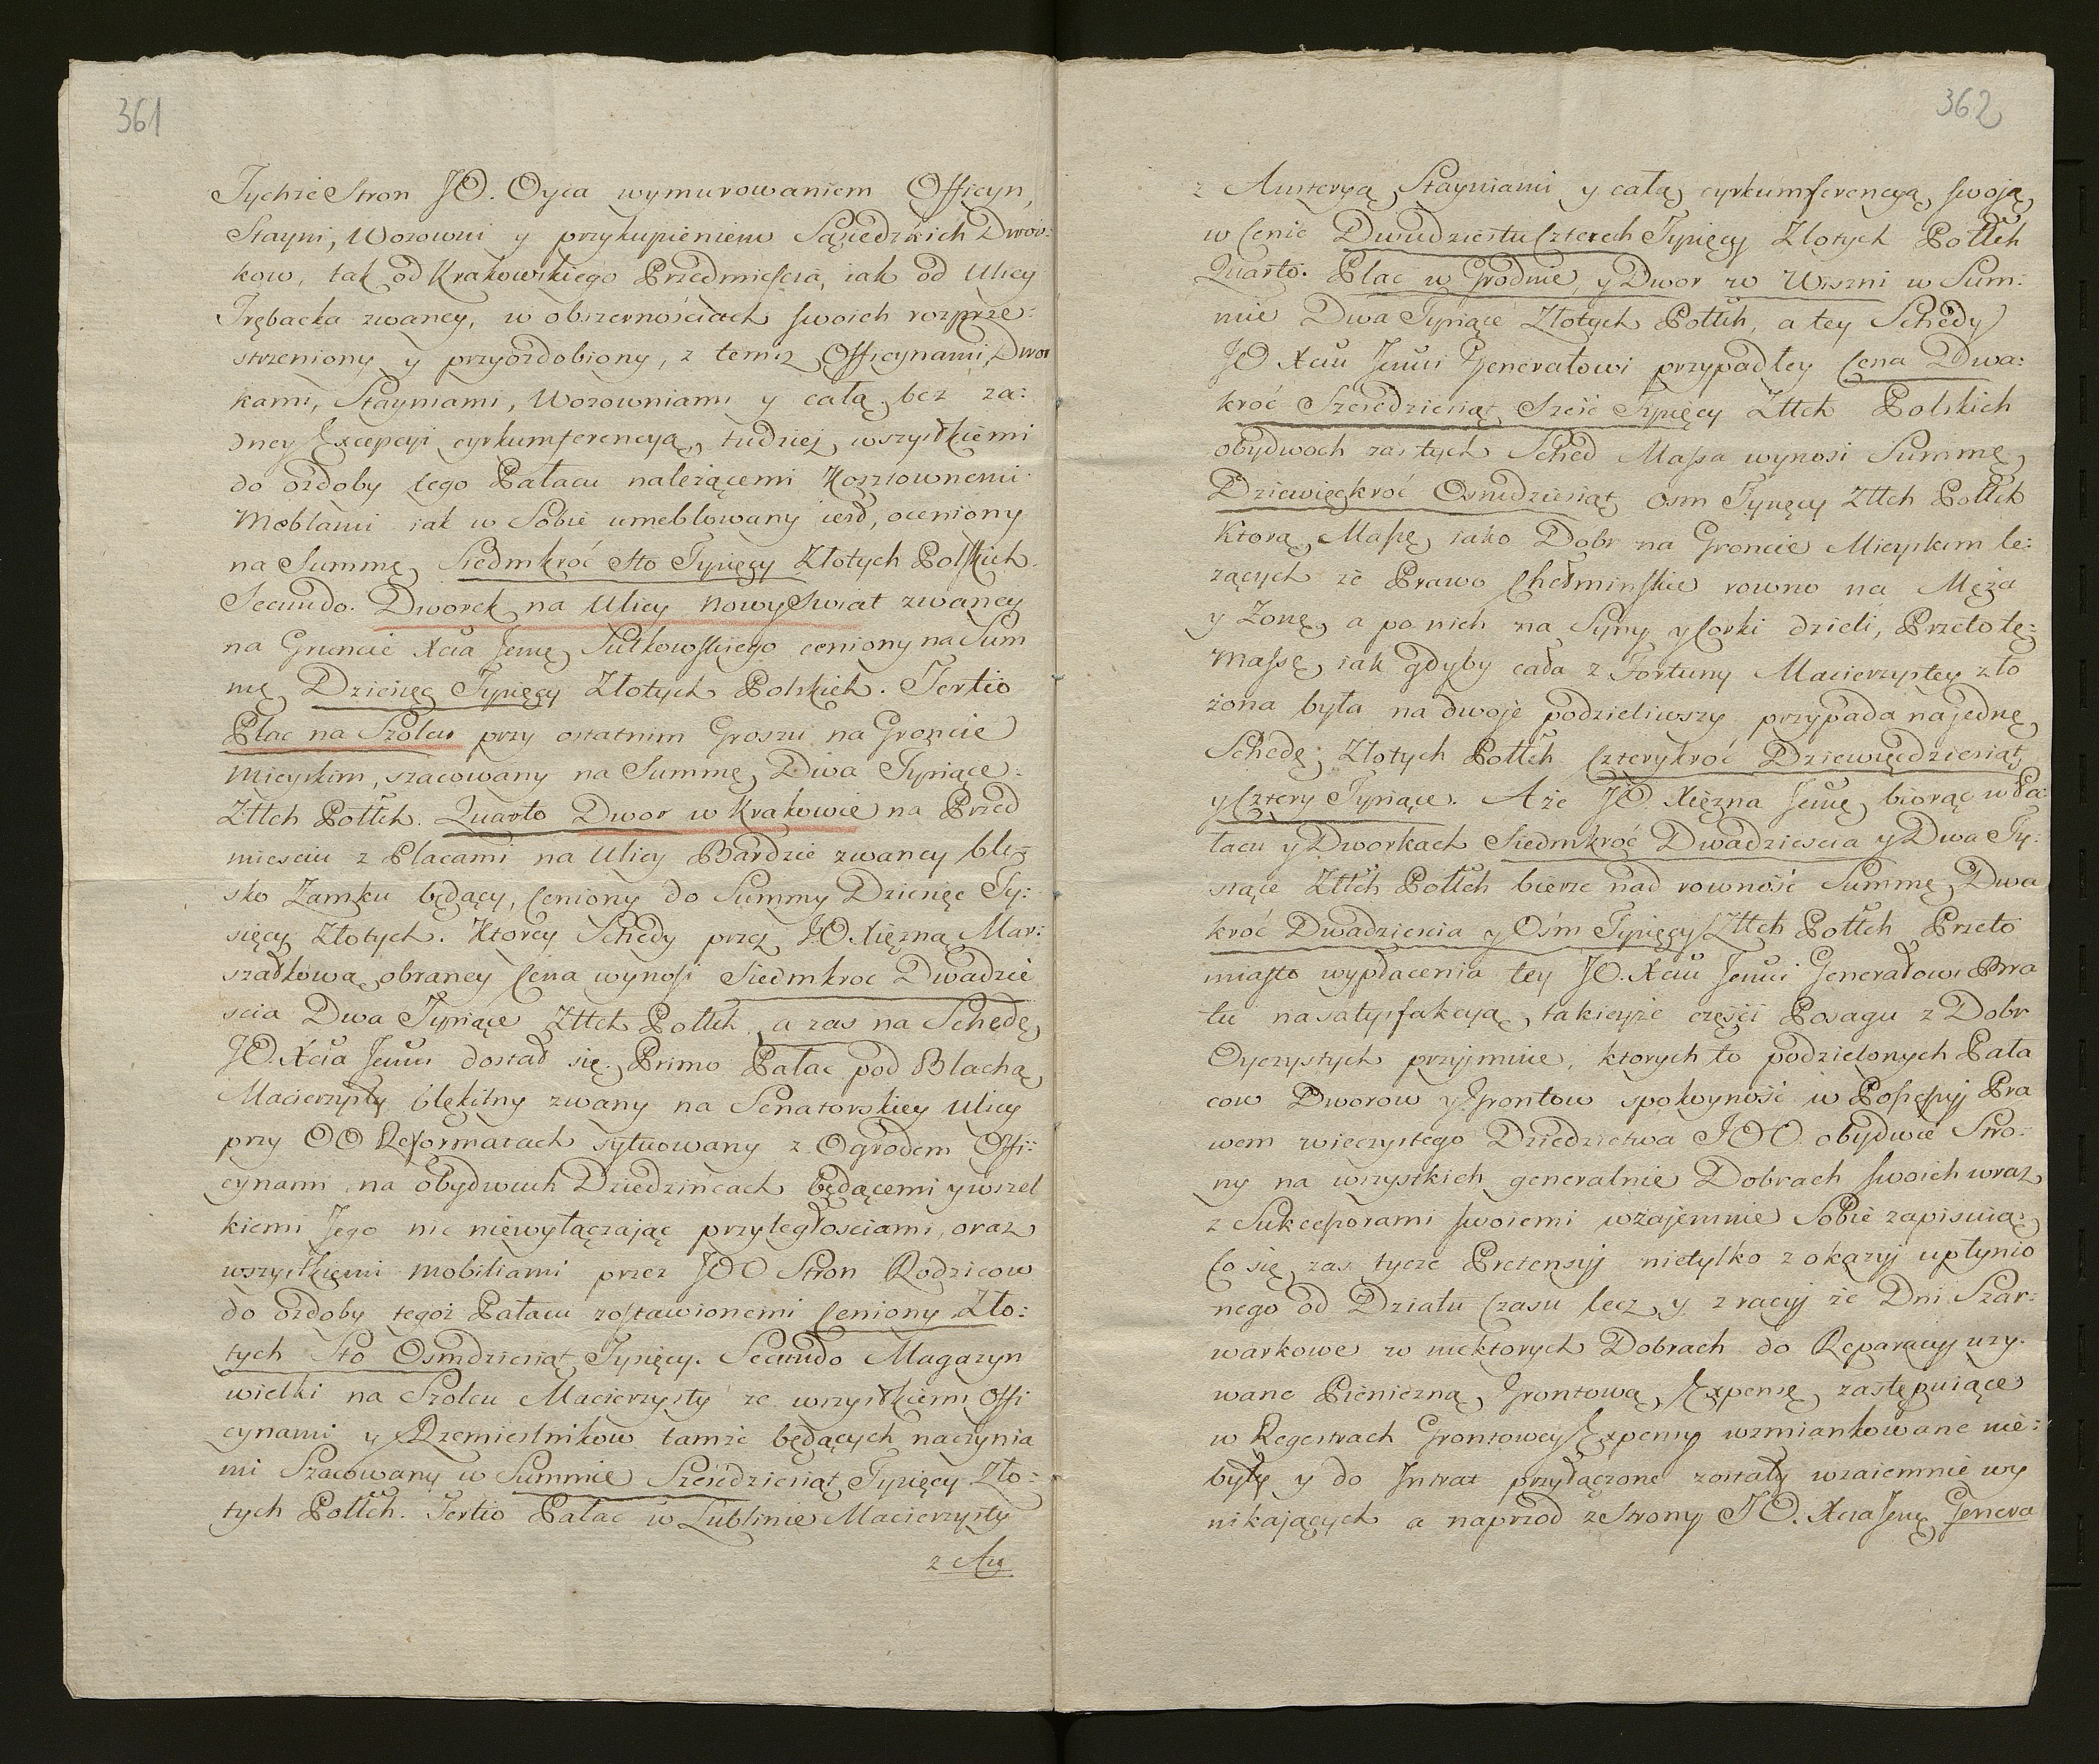 361
Tychże Stron JO. Oyca wymurowaniem Officyn,
Stayni, Wozowni y przykupieniem Sąsiedzkich Dwor:
kow, tak od Krakowskiego Przedmieścia, iak od Ulicy
Trębacka zwaney, w obszernościach swoich rozprze:
strzeniony y przyozdobiony, z temiż Officynami, Dwor
kami, Stayniami, Wozowniami y całą bez za:
dney Excepcyi cyrkumferencyą, tudziesz wszystkiemi
do ozdoby tego Pałacu należącemi Kosztownemi
Meblami iak w Sobie umeblowany iest, oceniony
na Summę Siedmkroć Sto Tysięcy Złotych Polskich.
Secundo. Dworek na Ulicy Nowy Swiat zwaney
na Gruncie Xcia Jmę Sułkowskiego ceniony na Sum
mę Dziesięć Tysięcy Złotych Polskich. Tertio
Plac na Szolcu przy ostatnim Groszu na Groncie
Mieyskim, szacowany na Summę Dwa Tysiące
Złtch Polłch. Quarto Dwor w Krakowie na Przed
miesciu z Placami na Ulicy Bardzie zwaney bli:
sko Zamku będący, Ceniony do Summy Dziesięć Ty:
sięcy Złotych. Ktorey Schedy przez JO Xięzną Mar:
szałkową obraney Cena wynosi Siedmkroc Dwadzie
scia Dwa Tysiące Złtch Polłch, a zas na Schedę
JO. Xcia Jmci dostał się. Primo Pałac pod Blachą
Macierzysty błękitny zwany na Senatorskiey Ulicy
przy OO Reformatach sytuowany z Ogrodem Offi:
cynami na obydwuch Dziedzińcach będącemi y wszel
kiemi Jego nic niewyłączając przyległosciami, oraz
wszystkiemi mobiliami przez JOO Stron Rodzicow
do ozdoby tegoż Pałacu zostawionemi Ceniony Zło:
tych Sto Osmdziesiąt Tysięcy. Secundo Magazyn
wielki na Szolcu Macierzysty ze wszystkiemi Offi
cynami y Rzemieslnikow tamże będących naczynia
mi Szacowany w Summie Sześcdziesiąt Tysięcy Zło:
tych Polłch. Tertio Pałac w Lublinie Macierzysty
z Au
362
z Austeryą, Stayniami y całą cyrkumferencyą swoją
w Cenie Dwudziestu Czterech Tysięcy Złotych Polłch
Quarto. Plac w Grodnie, y Dwor w Wiszni w Sum:
mie Dwa Tysiące Złotych Polłch, a tey Schedy
JO Xciu Jmci Generałowi przypadłey Cena Dwa:
kroć Sześcdziesiąt Sześć Tysięcy Złtch Polskich
obydwoch zas tych Sched Massa wynosi Summę
Dziewięckroć Osmdziesiąt Osm Tysięcy Złtch Polłch
Ktorą Massę iako Dobr na Groncie Mieyskim le:
żących że Prawo Chełminskie rowno na Męża
y Zonę, a po nich na Syny y Corki dzieli, Przeto tę
Massę, iak gdyby cała z Fortuny Macierzystey zło
żona była na dwoje podzieliwszy przypada na jednę
Schedę, Złotych Polłch Czterykroć Dziewięcdziesiąt
y Cztery Tysiące. A że JO Xięzna Jmę biorąc w Pa:
łacu y Dworkach Siedmkroć Dwadziescia y Dwa Ty:
siące Złtch Polłch bierze nad rowność Summę Dwa
kroć Dwadziescia y Ośm Tysięcy Złtch Polłch Przeto
miasto wypłacenia tey JO. Xciu Jmci Generałowi Bra
tu na satysfakcyą, takieyże części Posagu z Dobr
Oyczystych przyjmuie, ktorych to podzielonych Pała
cow Dworow y Grontow spokoyność w Possessyj Pra
wem wieczystego Dziedzictwa JOO. obydwie Stro:
ny na wszystkich generalnie Dobrach swoich wraz
z Sukcessorami swoiemi wzajemnie Sobie zapisuią.
Co się zas tycze Pretensyj nietylko z okazyj upłynio
nego od Działu Czasu lecz y z racyj że Dni Szar:
warkowe w niektorych Dobrach do Reparacyj uży.
wane Pieniezną Grontową Expensę zastępuiące
w Regestrach Grontowey Expensy wzmiankowane nie:
były y do Intrat przyłączone zostały wzaiemnie wy
nikających a naprzod ze Strony JO. Xcia Jmę Genera